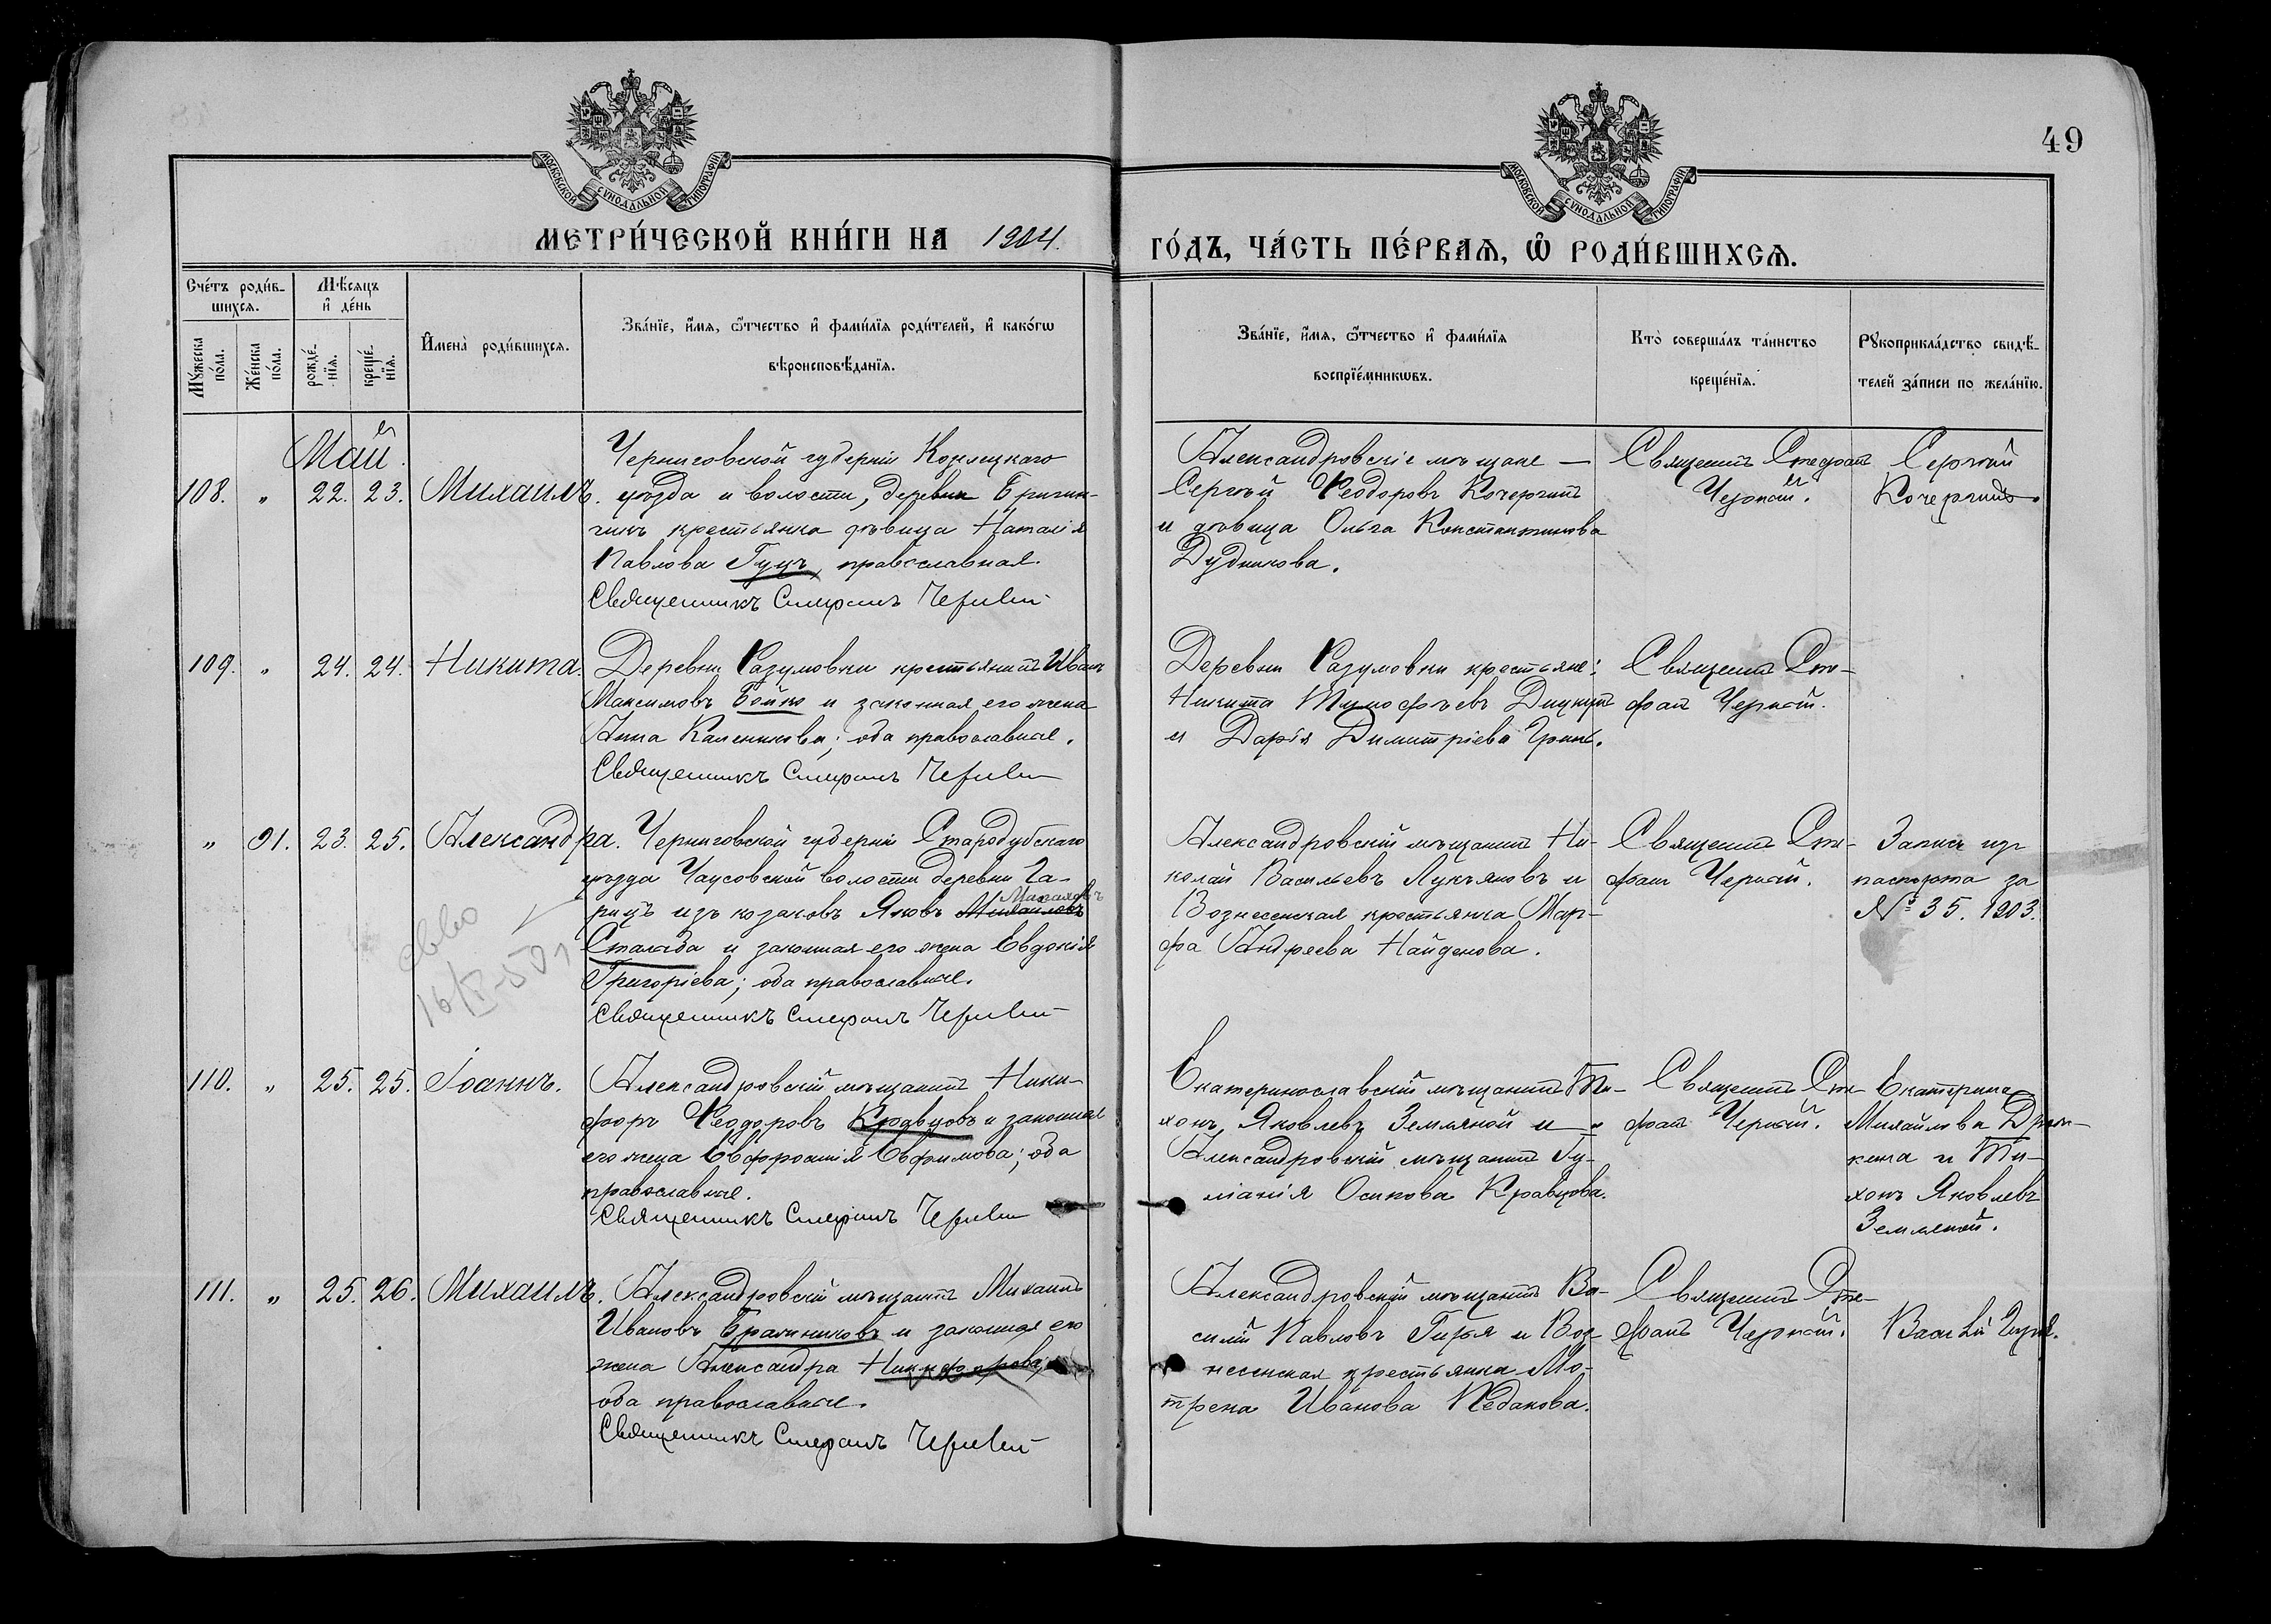 49
МОСКОВСКОЙ СѴНОДАЛЬНОЙ ТИПОГРАФІИ
МОСКОВСКОЙ СѴНОДАЛЬНОЙ ТИПОГРАФІИ
МЕТРИ́ЧЕСКОЙ КНИ́ГИ НА 1904.
ГО́ДЪ, ЧА́СТЬ ПЕ́РВАѦ, Ѡ҆ РОДИ́ВШИХСѦ.
Сче́тъ роди́в-
шихсѧ.
Мѣ́сѧцъ
и҆ де́нь
Мꙋ́жеска по́ла.
Же́нска по́ла.
рожде́-
нїѧ.
креще́-
нїѧ.
И҆мена̀ роди́вшихсѧ.
Зва́нїе, и҆́мѧ, ѻ҆́тчество и҆ фами́лїѧ роди́телей, и҆ како́гѡ
вѣроисповѣ́данїѧ.
Зва́нїе, и҆́мѧ, ѻ҆́тчество и҆ фами́лїѧ
воспрїе́мникѡвъ.
Кто̀ соверша́лъ та́инство
креще́нїѧ.
Рꙋкоприкла́дство свидѣ́-
телей за́писи по жела́нїю.
Май.
108. " 22. 23. Михаилъ.
Черниговской губерніи Козелецкаго
уѣзда и волости, деревни
крестьянка дѣвица Наталія
Павлова Гуцъ, православная.
Священникъ Стефанъ Чернай
Александровскіе мѣщане —
Сергѣй Ѳеодоровъ Кочергинъ
и дѣвица Ольга Константинова
Дудникова.
Священникъ Стефанъ
Чернай.
Сергѣй
Кочергинъ.
109. " 24. 24. Никита.
Деревни Разумовки крестьянинъ Иванъ
Максимовъ Бойко и законная его жена
Анна Каленикова; оба православные.
Священникъ Стефанъ Чернай
Деревни Разумовки крестьяне:
Никита Тимофѣевъ
и Дарія Димитріева
Священникъ Сте-
фанъ Чернай.
" 91. 23. 25. Александра.
Черниговской губерніи Стародубскаго
уѣзда Чаусовской волости деревни Га-
рицъ изъ козаковъ Яковъ Михайловъ
и законная его жена Евдокія
Григоріева; оба православные.
Священникъ Стефанъ Чернай
Александровскій мѣщанинъ Ни-
колай Васильевъ Лукьяновъ и
Вознесенская крестьянка Мар-
фа Андреева Найденова.
Священникъ Сте-
фанъ Чернай.
Запись из
паспорта за
№ 35. 1903.
110. " 25. 25. Іоаннъ.
Александровскій мѣщанинъ Ники-
форъ Ѳеодоровъ Кравцовъ и законная
его жена Евфросинія Евфимова; оба
православные.
Священникъ Стефанъ Чернай
Екатеринославскій мѣщанинъ Ти-
хонъ Яковлевъ Земляной и
Александровскій мѣщанинъ Гу-
ліанія Осипова Кравцова.
Священникъ Сте-
фанъ Чернай.
Екатерина
Михайлова
и Ти-
хонъ Яковлевъ
Земляной.
111. " 25. 26. Михаилъ.
Александровскій мѣщанинъ Михаилъ
Ивановъ Бражниковъ и законная его
жена Александра Никифорова;
оба православные.
Священникъ Стефанъ Чернай
Александровскій мѣщанинъ Ва-
силій Павловъ Гиря и Воз-
несенская крестьянка Мо-
трена Иванова Педакова.
Священникъ Сте-
фанъ Чернай.
Василій Гиря.